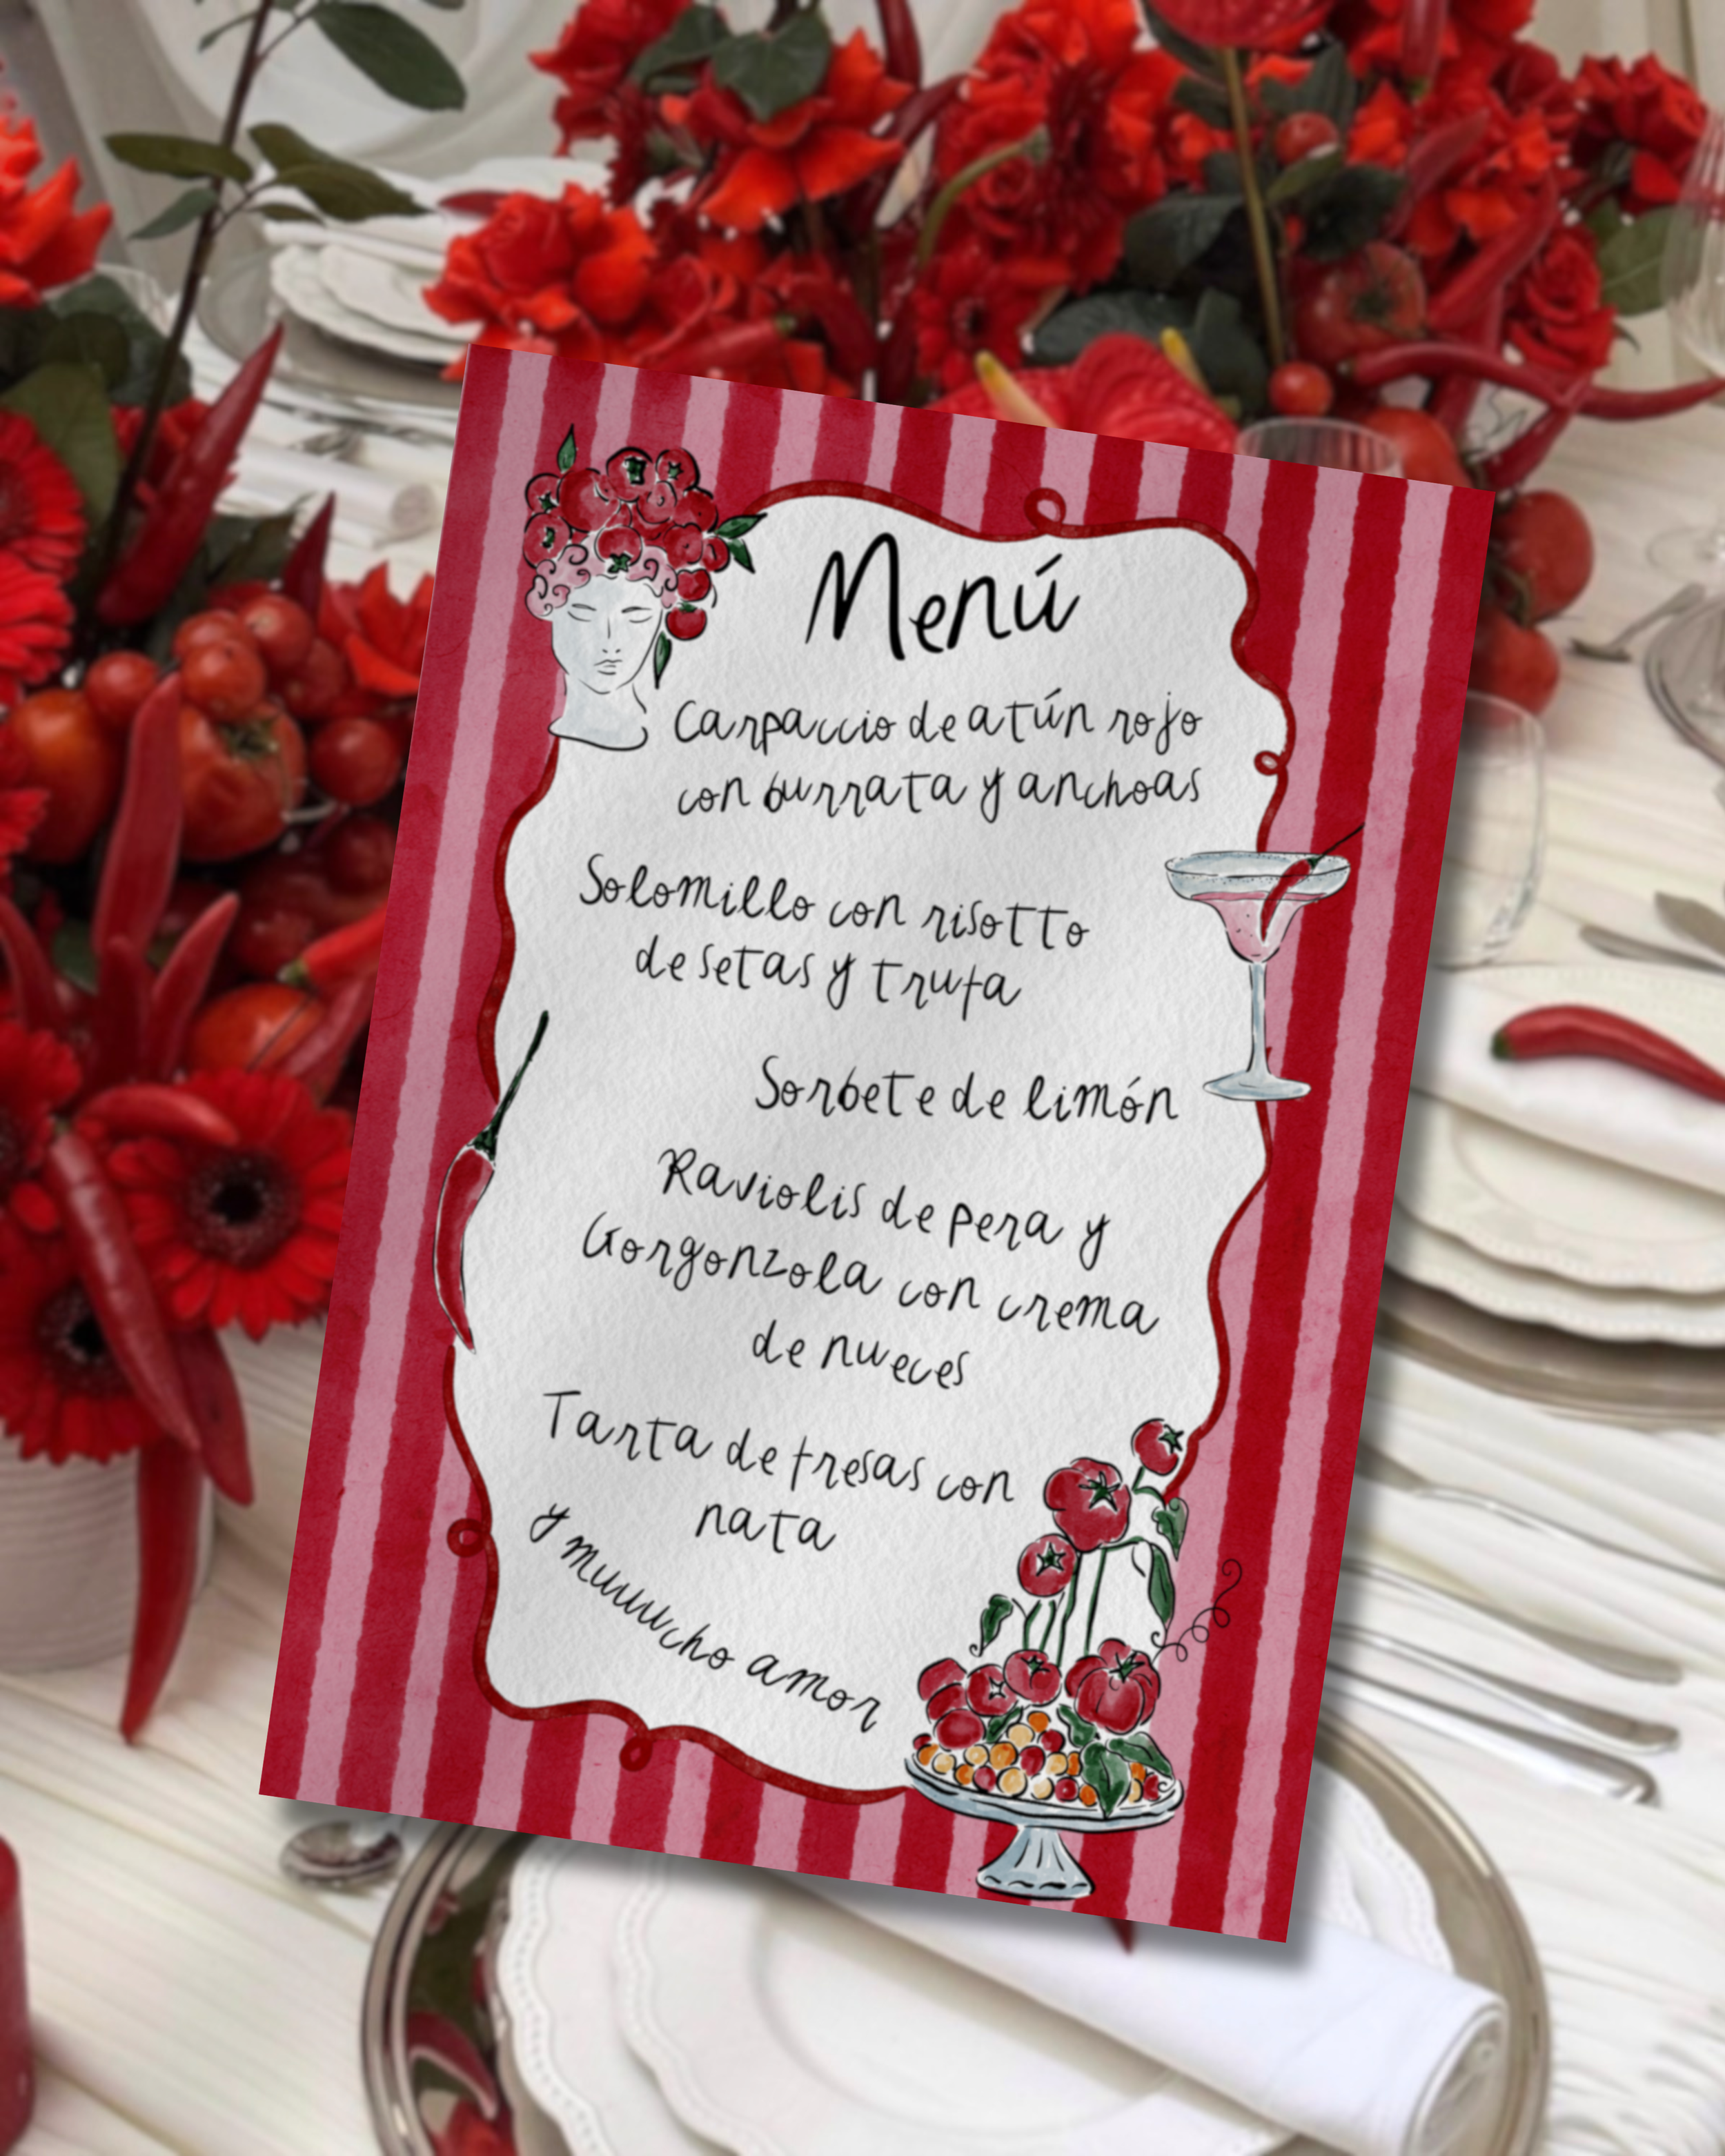 Menú
Carpaccio de atún rojo
con burrata y anchoas
Solomillo con risotto
de setas y trufa
Sorbete de limón
Raviolis de pera y
Gorgonzola con crema
de nueces
Tarta de fresas con
nata
y muuuucho amor